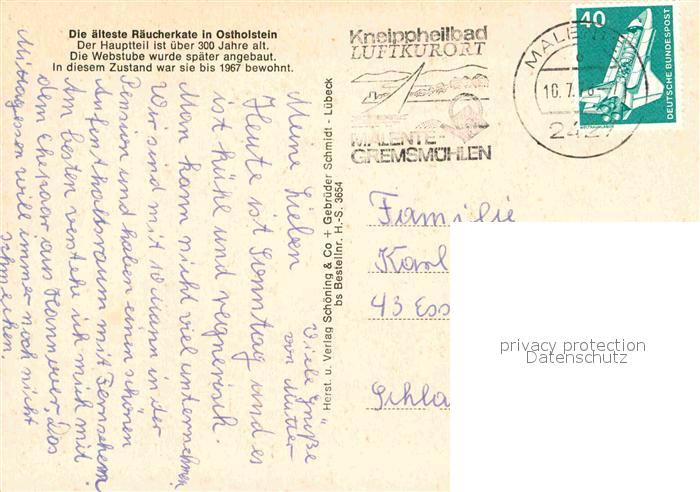 Die älteste Räucherkate in Ostholstein
Der Hauptteil ist über 300 Jahre alt.
Die Webstube wurde später angebaut.
In diesem Zustand war sie bis 1967 bewohnt.
Kneippheilbad
LUFTKURORT
MALENTE-
GREMSMÜHLEN
MALENTE
16.7.
2427
40
DEUTSCHE BUNDESPOST
Herst. u. Verlag Schöning & Co + Gebrüder Schmidt - Lübeck
bs Bestellnr. H.-S. 3654
Meine Lieben
Heute ist Sonntag und es
ist kühl und regnerisch.
Man kann nicht viel unternehmen
Wir sind mit 10 Mann in der
Pension und haben einen schönen
Aufenthaltsraum mit Fernsehem
Am besten verstehe ich mich mit
dem Ehepaar aus Hannover. Das
Mittagessen will immer noch nicht
schmecken.
Viele Grüße
von Mutter
Familie
Karl
43 Ess
Schla
privacy protection
Datenschutz